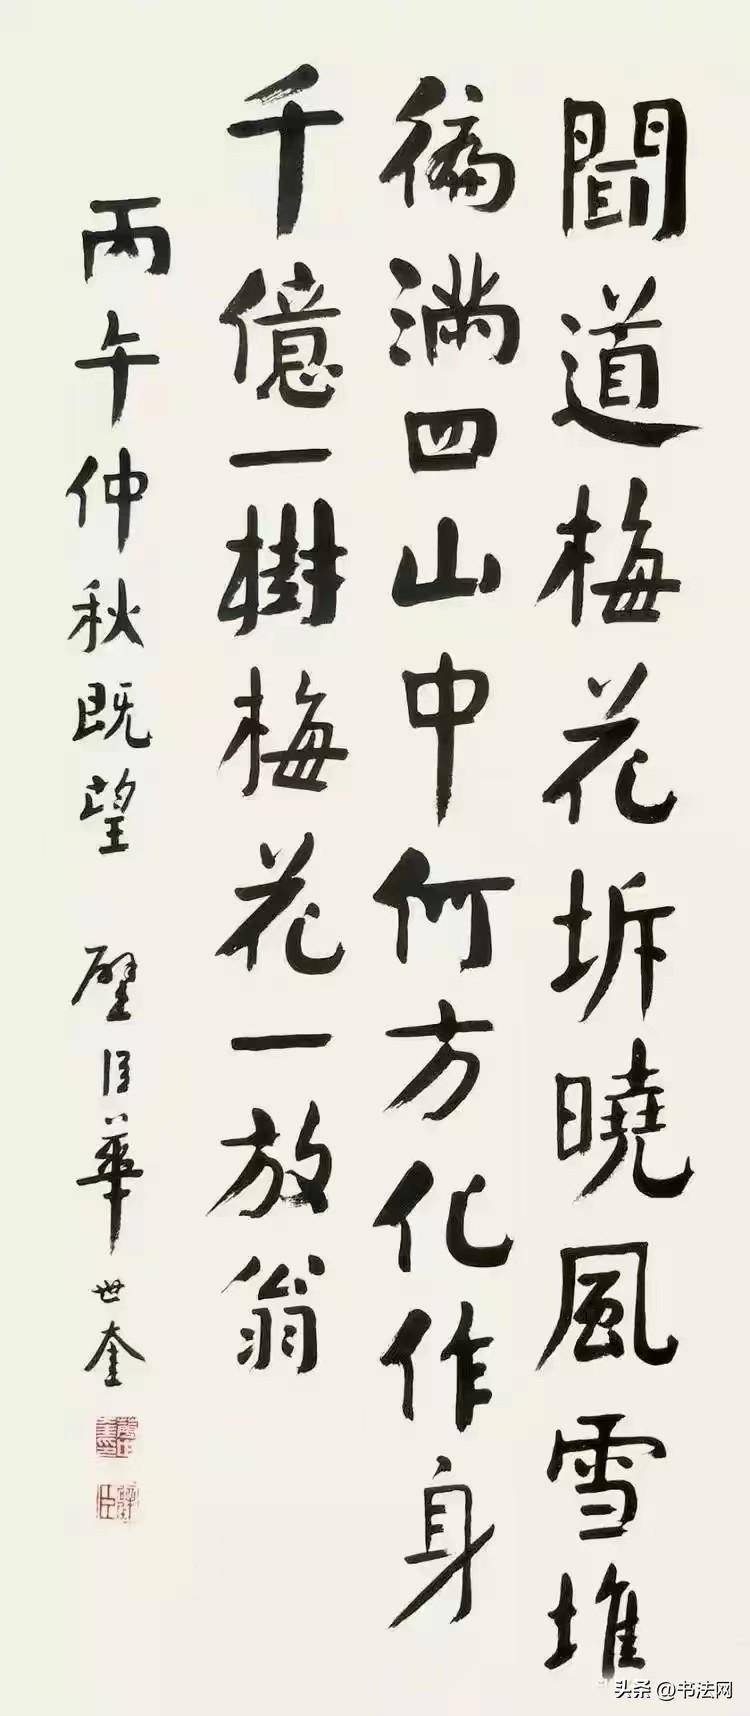 聞道梅花坼曉風雪堆
徧滿四山中何方化作身
千億一樹梅花一放翁
丙午仲秋既望 璧臣華世奎
头条 @书法网